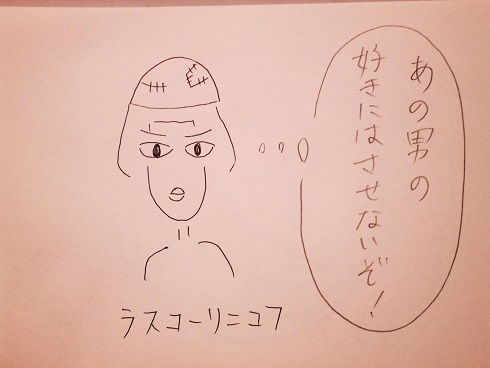 あの男の
好きにはさせないぞ!
ラスコーリニコフ